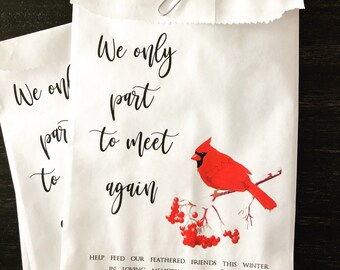 We only
part
to meet
again
HELP FEED OUR FEATHERED FRIENDS THIS WINTER
IN LOVING MEMORY
We on
par
to